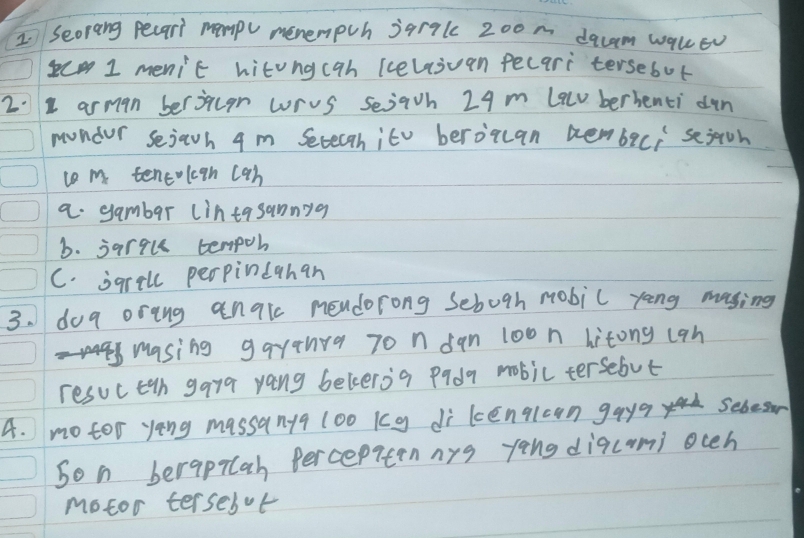 1. Seorang pelari mampu menempuh jarak 200 m dalam waktu
1 menit hitunglah kelajuan Pelari tersebut
2. arman berjalan lurus sejauh 24 m lalu berhenti dan
mundur sejauh 4 m setelah itu berjalan kembali sejauh
10 m. tentukan lah
a. gambar lintasannya
b. jarak tempuh
C. jarak perpindahan
3. dua orang anak mendorong sebuah mobil yang masing
masing gayanya 70 n dan 100 n hitung lah
resultan gaya yang bekerja pada mobil tersebut
4. motor yang massanya 100 kg di kenakan gaya sebesar
50 n berapakah Percepatan nya yang dialami oleh
motor tersebut